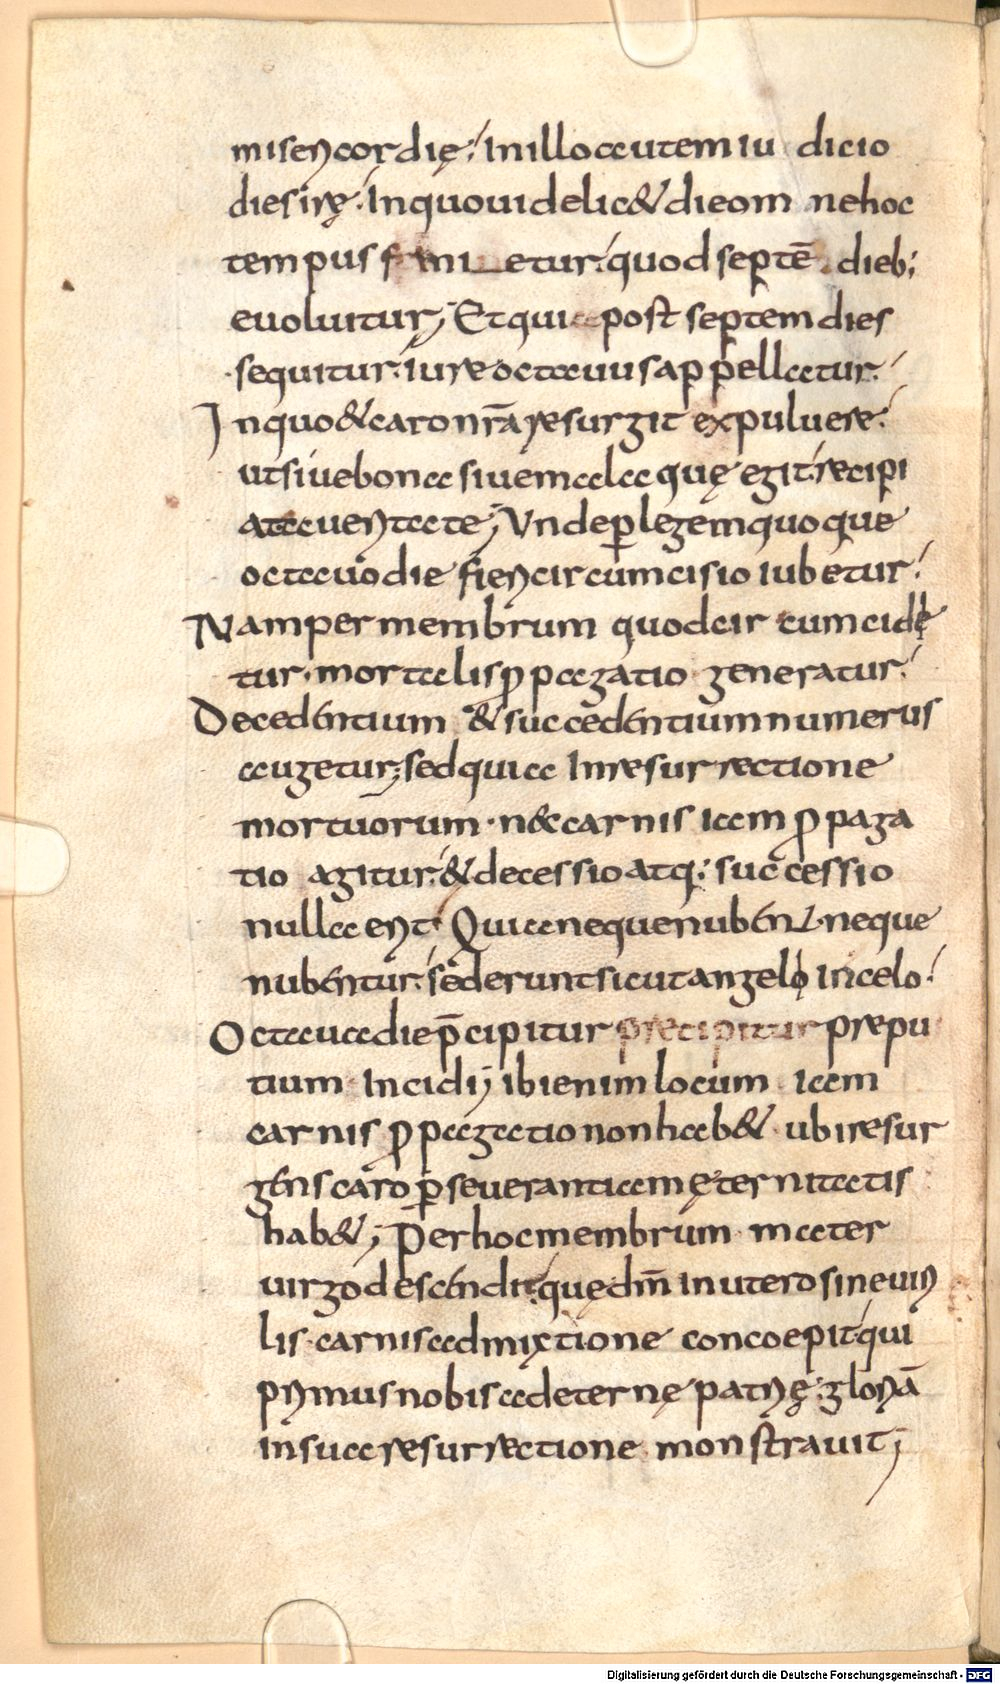 misericordię; In illo autem iu dicio
dies irę; In quo uidelic& die om nehoc
tempus f mi etur; quod septē dieb;
euoluitur; Et quia post septem dies
sequitur; iure octauus appellatur;
In quo & caro nrā resurgit expuluere;
ut siue bona siue mala quę egit; recipi
at auentate; Unde p̄ legem quoque
octauo die fieri circumcisio iubetur;
Nam per membrum quod cir cumcide
tur. mortalis ꝓpagatio generatur;
Decedentium & succedentium numerus
augetur; sed quia In resurrectione
mortuorum. nec carnis iam ꝓpaga
tio agitur; & decessio atq; successio
nulla erit; Quia neque nubent. neque
nubentur; sed erunt sicut angeli In celo;
Octaua die p̄cipitur precipitur prepu
tium Incidi; ibi enim locum iam
carnis ꝓpagatio non hab& ubi resur
gens caro p̄seuerantiam ęternitatis
hab&; Per hoc membrum mater
uirgo descendit; quę dm̄ In utero sine uiri
lis carnis admixtione concoepit; qui
primus nobis ad eternę patrię; gloriā
In sua resurrectione monstrauit;
Digitalisierung gefördert durch die Deutsche Forschungsgemeinschaft - DFG